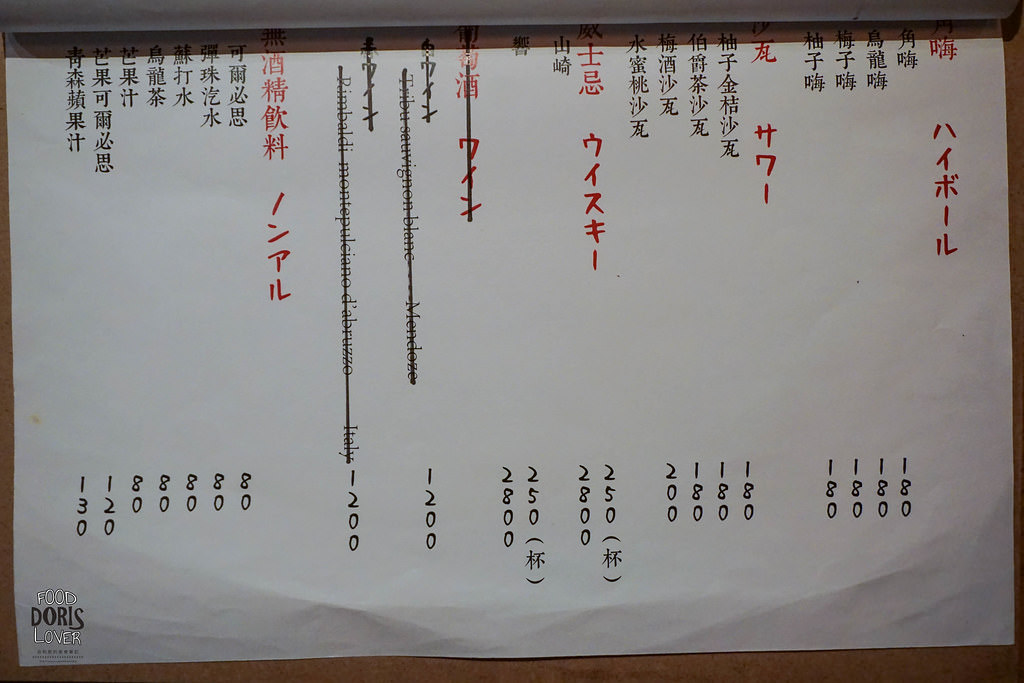 角嗨 ハイボール
角嗨 180
烏龍嗨 180
梅子嗨 180
柚子嗨 180
沙瓦 サワー
柚子金桔沙瓦 180
伯爵茶沙瓦 180
梅酒沙瓦 180
水蜜桃沙瓦 200
威士忌 ウイスキー
山崎 250(杯)
2800
響 250(杯)
2800
葡萄酒 ワイン
白ワイン
sauvignon blanc --- Mendoze 1200
赤ワイン
Rimbaldi montepulciano d'abruzzo Italy 1200
無酒精飲料 ノンアル
可爾必思 80
彈珠汽水 80
蘇打水 80
烏龍茶 80
芒果汁 80
芒果可爾必思 120
青森蘋果汁 130
FOOD
DORIS
LOVER